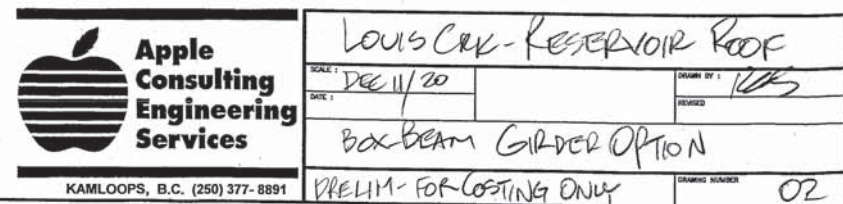 Apple
Consulting
Engineering
Services
KAMLOOPS, B.C. (250) 377-8891
LOUIS CRK - RESERVOIR ROOF
SCALE :
DEC 11/20
DRAWN BY :
DATE :
REVISED
BOX BEAM GIRDER OPTION
PRELIM - FOR COSTING ONLY
DRAWING NUMBER
02